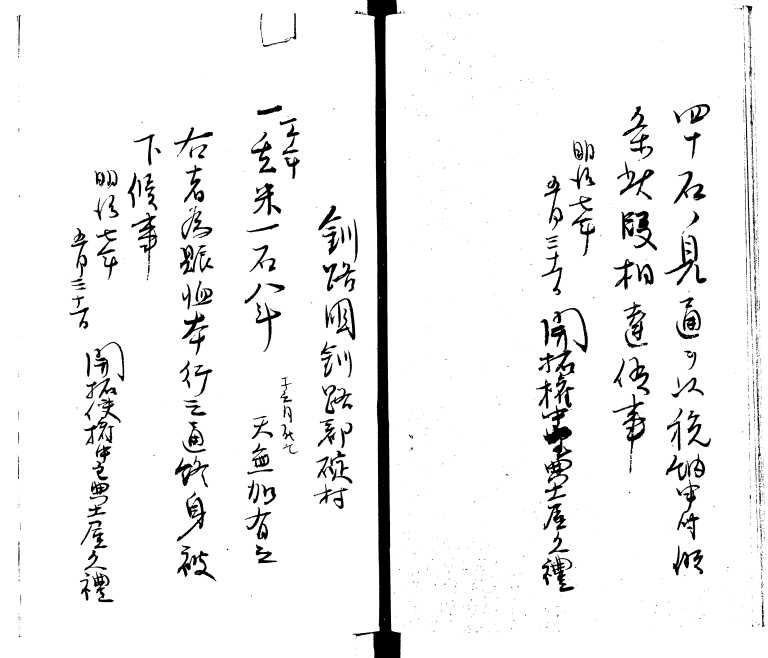 四十石ノ見通ヲ以税納申付候
条此段相達候事
明治七年
五月三十一日
開拓権中主典土屋久禮
釧路国釧路郡碇村
一玄米一石八斗
天無加有之
右者為賑恤本行之通終身被
下候事
明治七年
五月三十一日
開拓使権中主典土屋久禮